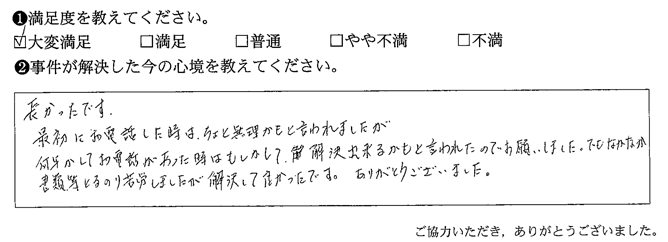 ❶満足度を教えてください。
☑大変満足 □満足 □普通 □やや不満 □不満
❷事件が解決した今の心境を教えてください。
長かったです.
最初にお電話した時は、ちょと無理かもと言われましたが
何年かしてお電話があった時はもしかして、解決出来るかもと言われたのでお願いしました。でもなかなか
書類等とるのり苦労しましたが解決して良かったです。ありがとうございました。
ご協力いただき，ありがとうございました。